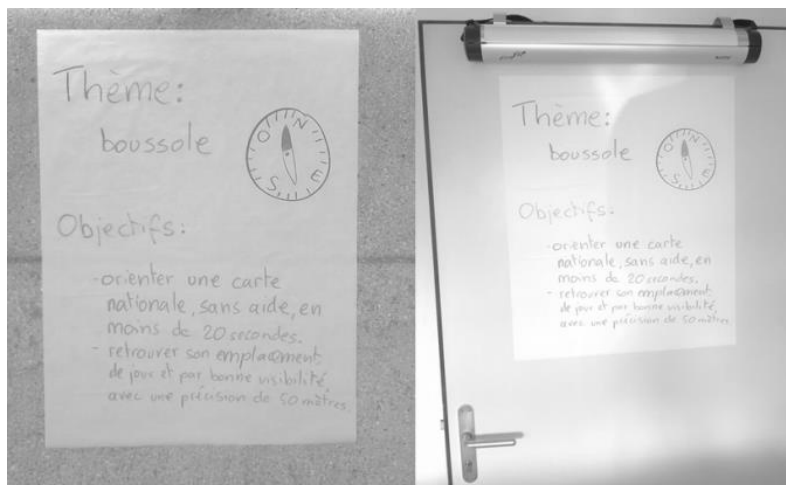 Thème:
boussole
N
E
S
O
Objectifs:
- orienter une carte
nationale, sans aide, en
moins de 20 secondes.
- retrouver son emplacement
de jour et par bonne visibilité,
avec une précision de 50 mètres.
Thème:
boussole
N
E
S
O
Objectifs:
- orienter une carte
nationale, sans aide, en
moins de 20 secondes.
- retrouver son emplacement
de jour et par bonne visibilité,
avec une précision de 50 mètres